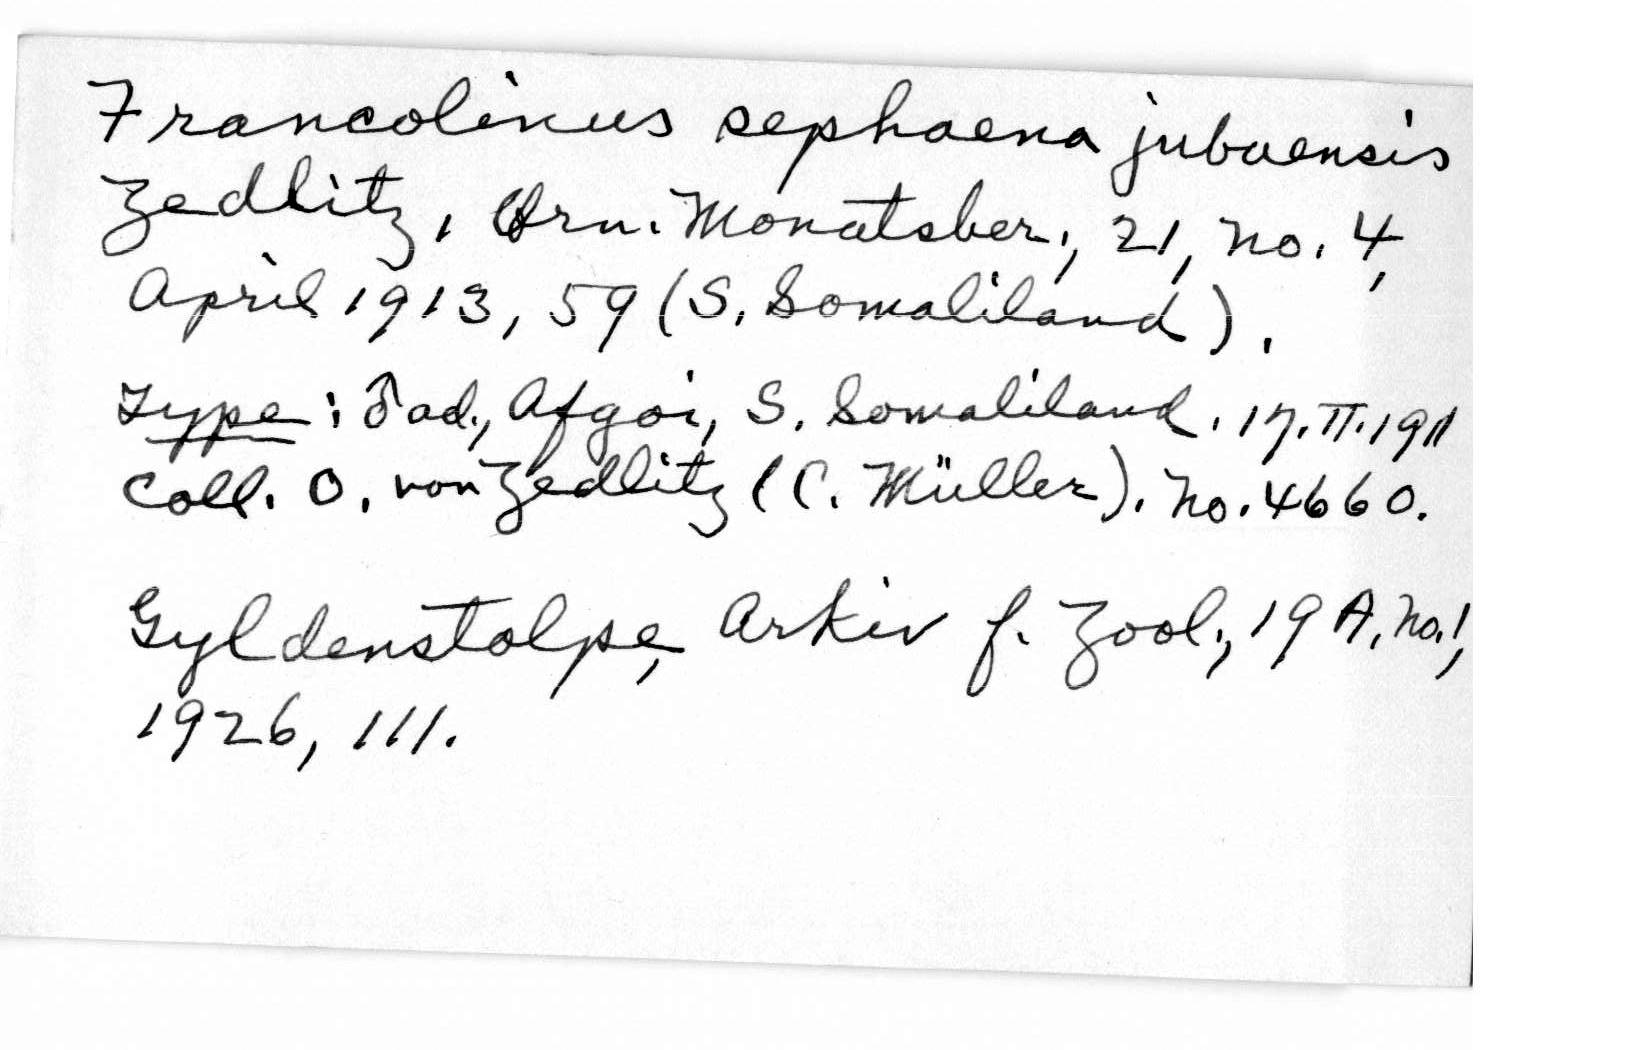 Francolinus sephaena jubaensis
Zedlitz, Orn. Monatsber., 21, no. 4,
April 1913, 59 (S. Somaliland).
Type: ♂ ad., Afgoi, S. Somaliland. 17.II.1911
Coll. O. von Zedlitz (C. Müller). No. 4660.
Gyldenstolpe, Arkiv f. Zool., 19 A, no. 1,
1926, 111.